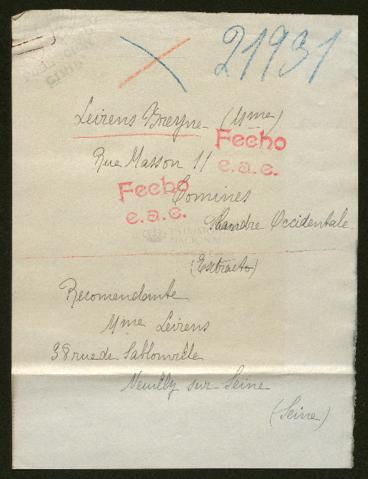 21931
Leirens Breyne (Mme)
Fecho
e.a.e.
Rue Masson 11
Fecho
e.a.e.
Comines
Flandre Occidentale
(Extracto)
Recomendante
Mme Leirens
38 rue de Sablonville
Neuilly sur Seine
(Seine)